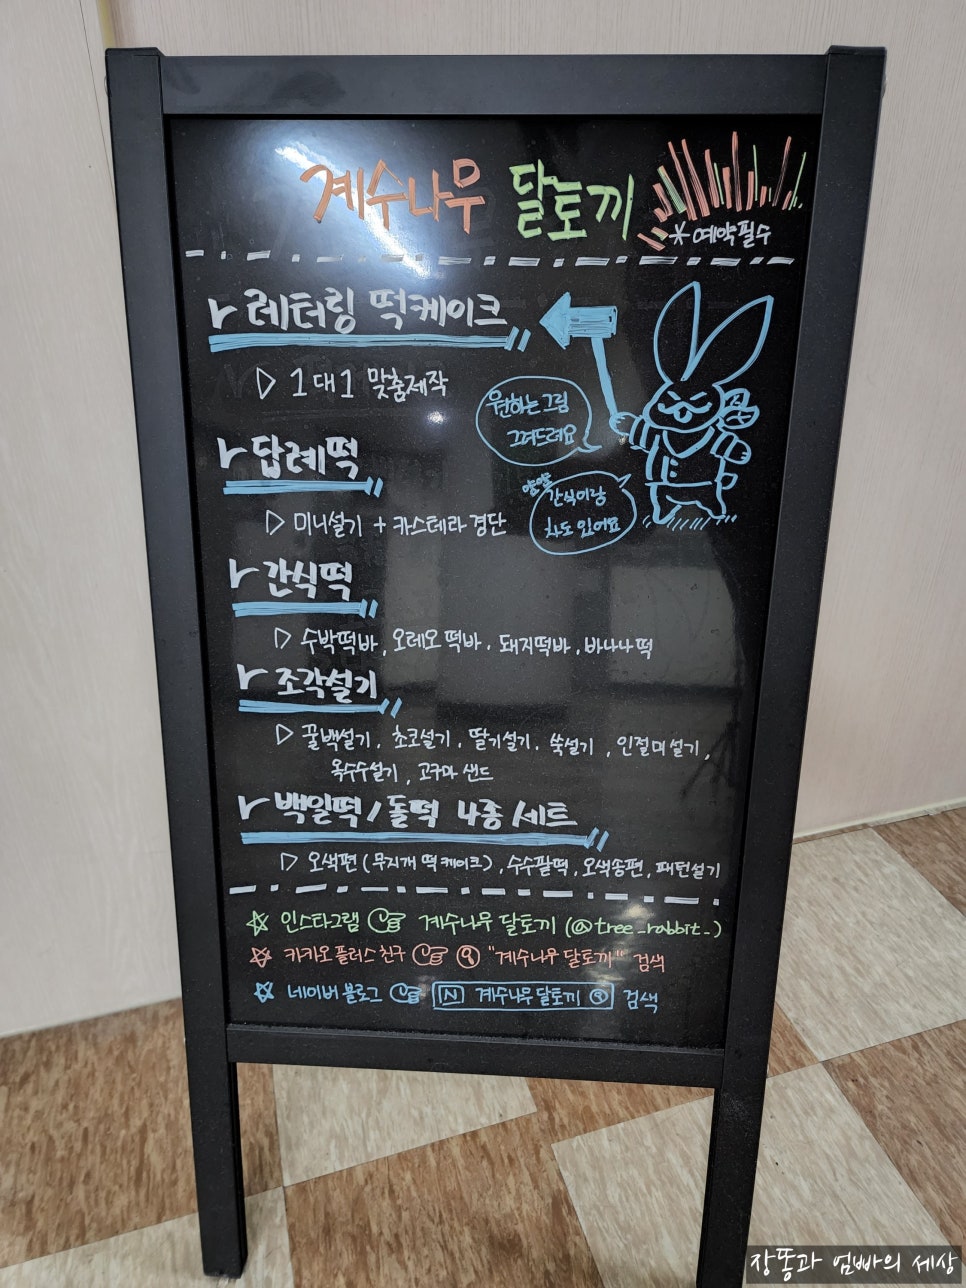 계수나무 달토끼
*예약필수
레터링 떡케이크
▷ 1대1 맞춤제작
원하는 그림
그려드려요
답례떡
▷ 미니설기 + 카스테라 경단
간식이랑
차도 있어요
간식떡
▷ 수박떡바, 오레오 떡바, 돼지떡바, 바나나떡
조각설기
▷ 꿀백설기, 초코설기, 딸기설기, 쑥설기, 인절미설기,
옥수수설기, 고구마 샌드
백일떡/돌떡 4종 세트
▷ 오색편(무지개 떡케이크), 수수팥떡, 오색송편, 패턴설기
☆ 인스타그램 계수나무 달토끼 (@tree_rabbit_)
☆ 카카오플러스친구 "계수나무 달토끼" 검색
☆ 네이버 블로그 N 계수나무 달토끼 검색
장똥과 엄빠의 세상